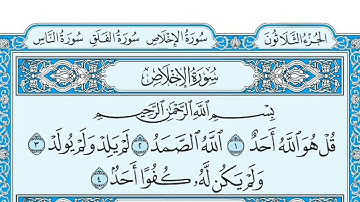 الجزء الثلاثون سورة الإخلاص سورة الفلق سورة الناس
سورة الإخلاص
بسم الله الرحمن الرحيم
قُلْ هُوَ ٱللَّهُ أَحَدٌ ١ ٱللَّهُ ٱلصَّمَدُ ٢ لَمْ يَلِدْ وَلَمْ يُولَدْ ٣
وَلَمْ يَكُن لَّهُۥ كُفُوًا أَحَدٌۢ ٤